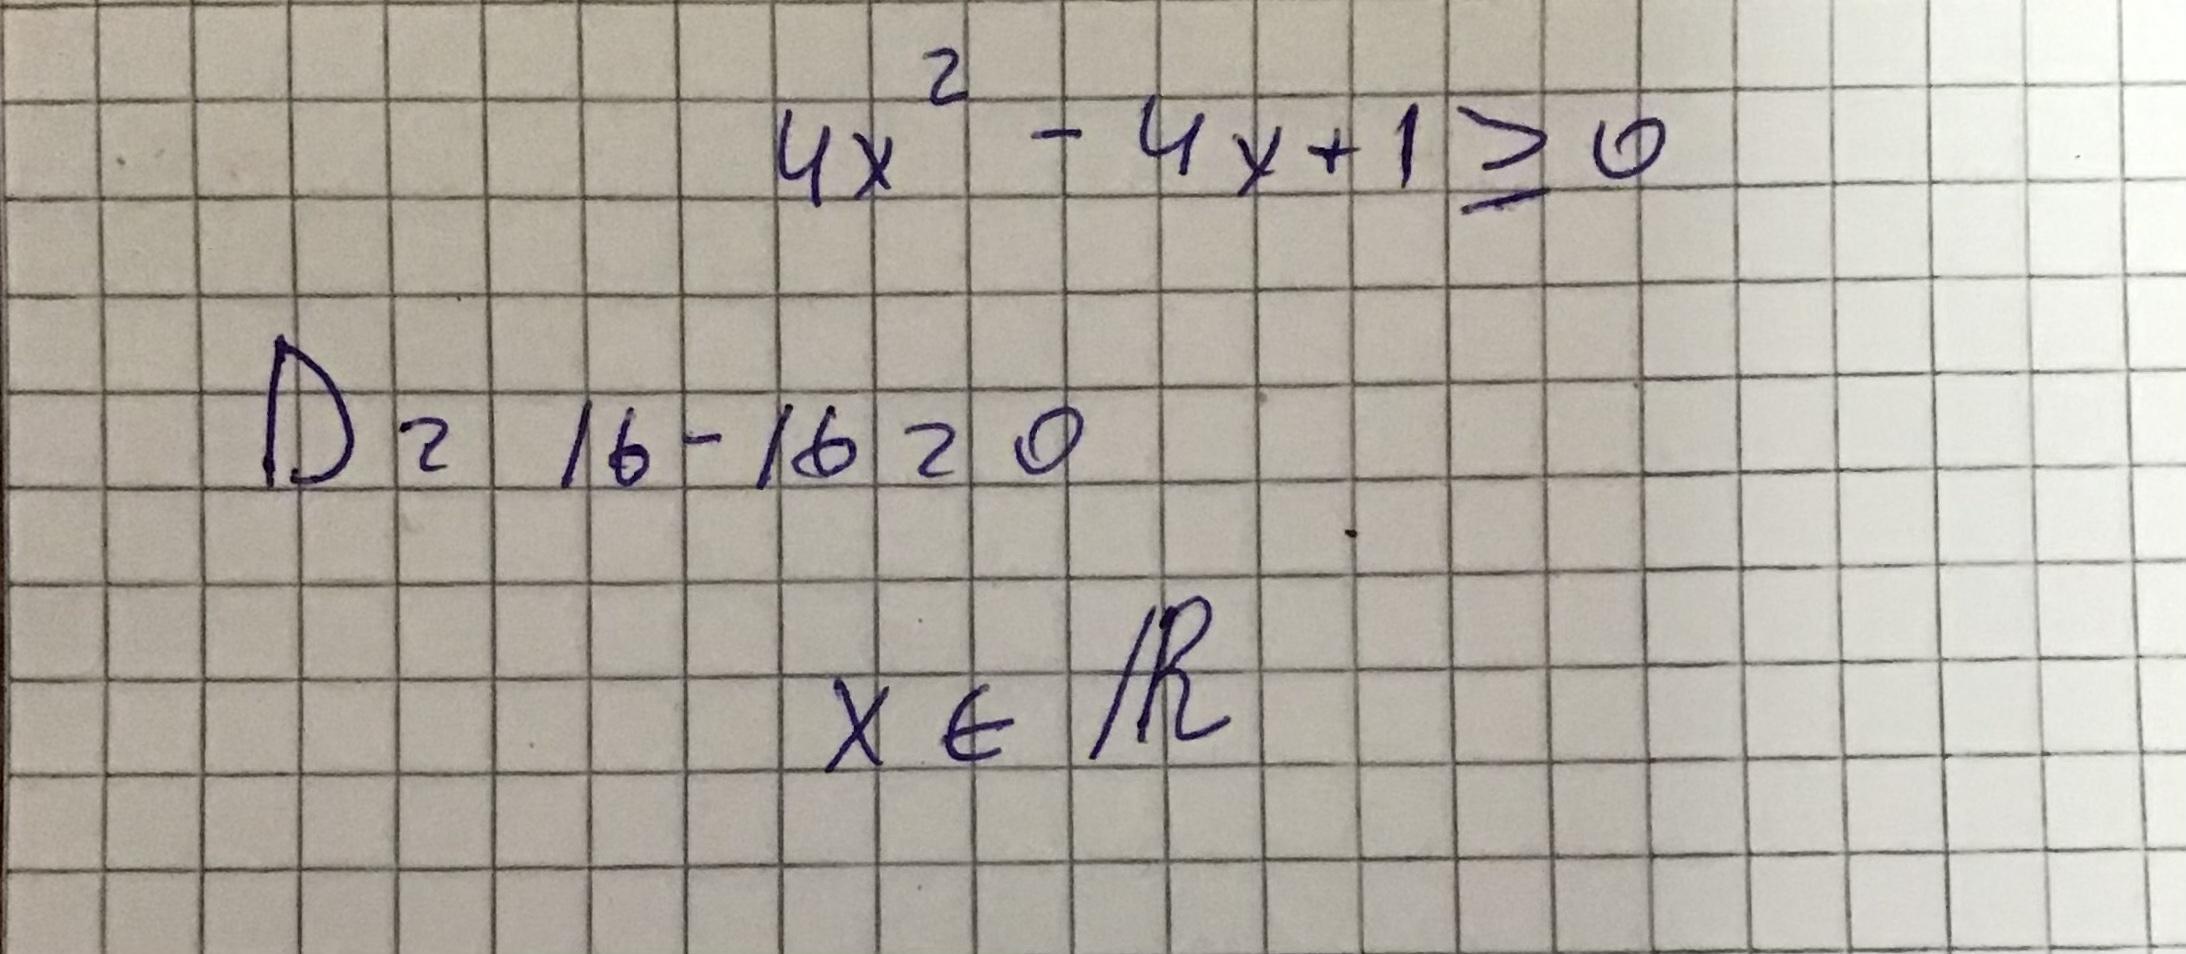 4x² - 4x + 1 ≥ 0
D = 16 - 16 = 0
x ∈ ℝ